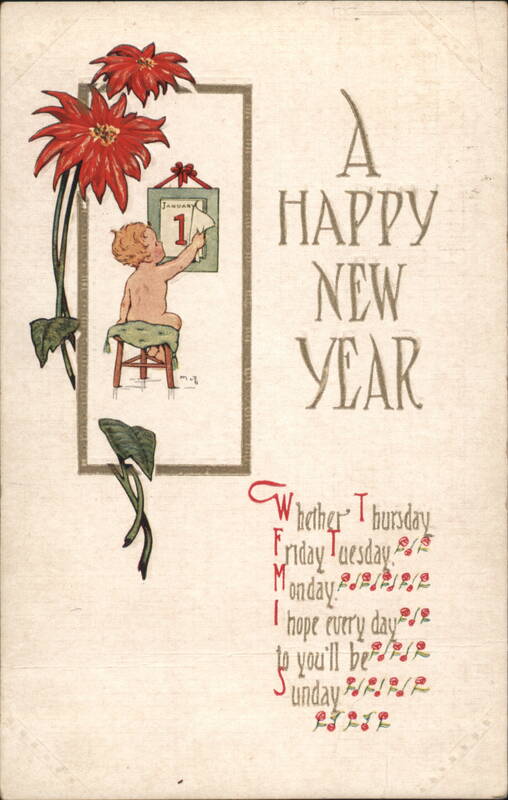 A
HAPPY
NEW
YEAR
JANUARY
1
Whether Thursday
Friday Tuesday,
Monday.
I hope every day
to you'll be
Sunday